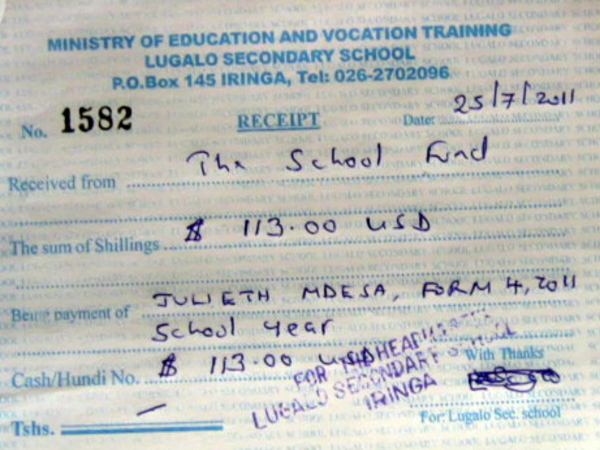 MINISTRY OF EDUCATION AND VOCATION TRAINING
LUGALO SECONDARY SCHOOL
P.O.Box 145 IRINGA, Tel: 026-2702096
No. 1582 RECEIPT Date: 25/7/2011
Received from The School Fund
The sum of Shillings $ 113.00 USD
Being payment of JULIETH MDESA, FORM 4, 2011
School year
Cash/Hundi No. $ 113.00 USD
With Thanks
FOR HEADMASTER
LUGALO SECONDARY SCHOOL
IRINGA
Tshs. —
For: Lugalo Sec. school